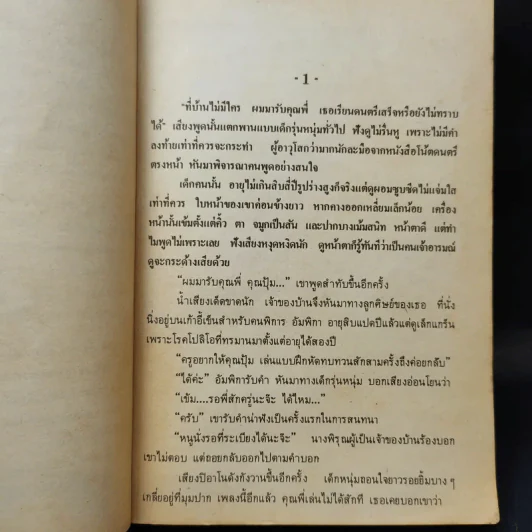 - 1 -
"ที่บ้านไม่มีใคร ผมมารับคุณพี่ เธอเรียนดนตรีเสร็จหรือยังไม่ทราบ
ได้" เสียงพูดนั้นแตกพานแบบเด็กรุ่นหนุ่มทั่วไป ฟังดูไม่รื่นหู เพราะไม่มีคำ
ลงท้ายเท่าที่ควรจะกระทำ ผู้อาวุโสกว่ามากนักละมือจากหนังสือโน้ตดนตรี
ตรงหน้า หันมาพิจารณาคนพูดอย่างสนใจ
เด็กคนนั้น อายุไม่เกินสิบสี่ปีรูปร่างสูงก็จริงแต่ดูผอมซูบซีดไม่แจ่มใส
เท่าที่ควร ใบหน้าของเขาค่อนข้างยาว หากคางออกเหลี่ยมเล็กน้อย เครื่อง
หน้านั้นเข้มตั้งแต่คิ้ว ตา จมูกเป็นสัน และปากบางเม้มสนิท หน้าตาดี แต่ทำ
ไมพูดไม่เพราะเลย ฟังเสียงหงุดหงิดนัก ดูหน้าตาก็รู้ทันทีว่าเป็นคนเจ้าอารมณ์
ดูจะกระด้างเสียด้วย
"ผมมารับคุณพี่ คุณปุ้ม..." เขาพูดสำทับขึ้นอีกครั้ง
น้ำเสียงเด็ดขาดนัก เจ้าของบ้านจึงหันมาทางลูกศิษย์ของเธอ ที่นั่ง
นิ่งอยู่บนเก้าอี้เข็นสำหรับคนพิการ อัมพิกา อายุสิบแปดปีแล้วแต่ดูเล็กแกร็น
เพราะโรคโปลิโอที่ทรมานมาตั้งแต่อายุได้สองปี
"ครูอยากให้คุณปุ้ม เล่นแบบฝึกหัดทบทวนสักสามครั้งถึงค่อยกลับ"
"ได้ค่ะ" อัมพิการับคำ หันมาทางเด็กรุ่นหนุ่ม บอกเสียงอ่อนโยนว่า
"เข้ม....รอพี่สักครู่นะจ๊ะ ได้ไหม..."
"ครับ" เขารับคำน่าฟังเป็นครั้งแรกในการสนทนา
"หนูนั่งรอที่ระเบียงได้นะจ๊ะ" นางพิรุณผู้เป็นเจ้าของบ้านร้องบอก
เขาไม่ตอบ แต่ถอยกลับออกไปตามคำบอก
เสียงปิอาโนดังกังวานขึ้นอีกครั้ง เด็กหนุ่มถอนใจยาวรอยยิ้มบาง ๆ
เกลื่อยู่ที่มุมปาก เพลงนี้อีกแล้ว คุณพี่เล่นไม่ได้สักที เธอเคยบอกเขาว่า